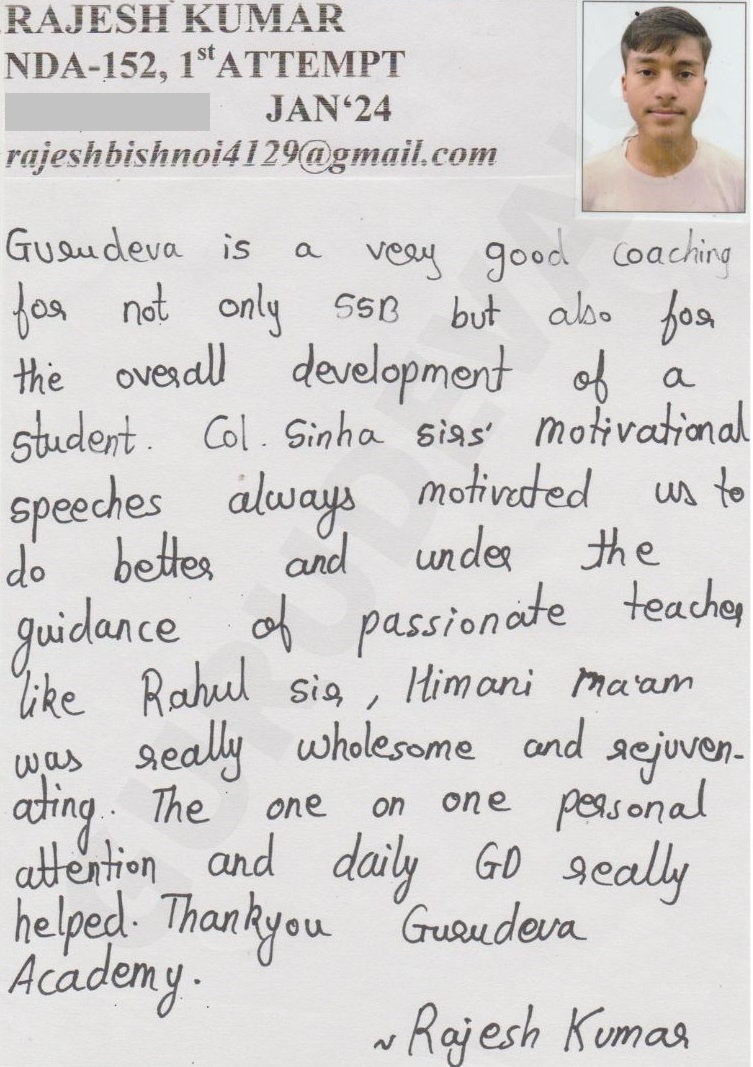 RAJESH KUMAR
NDA-152, 1st ATTEMPT
JAN‘24
rajeshbishnoi4129@gmail.com
Gurudeva is a very good coaching
for not only SSB but also for
the overall development of a
student. Col. Sinha sirs' motivational
speeches always motivated us to
do better and under the
guidance of passionate teacher
like Rahul sir, Himani ma'am
was really wholesome and rejuven-
ating. The one on one personal
attention and daily GD really
helped. Thankyou Gurudeva
Academy.
~ Rajesh Kumar
GURUDEVA'S